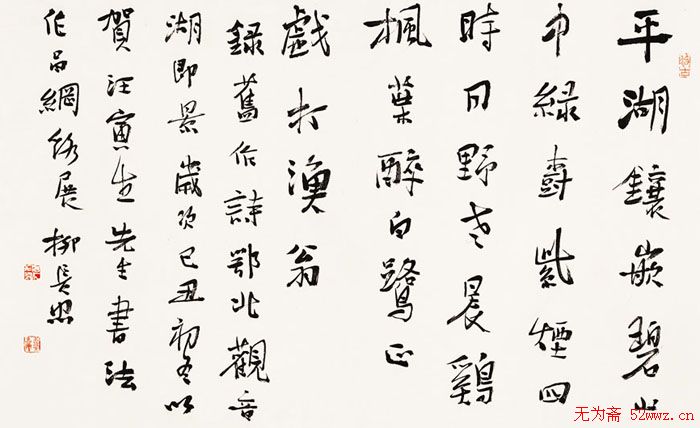 平湖鑲嵌碧山
中緑樹紫煙四
時同野老晨鷄
楓葉醉白鷺正
戲打漁翁
録舊作詩鄂北觀音
湖即景歲次己丑初冬以
賀汪寅生先生書法
作品網絡展 柳長忠
无为斋 52wwz.cn